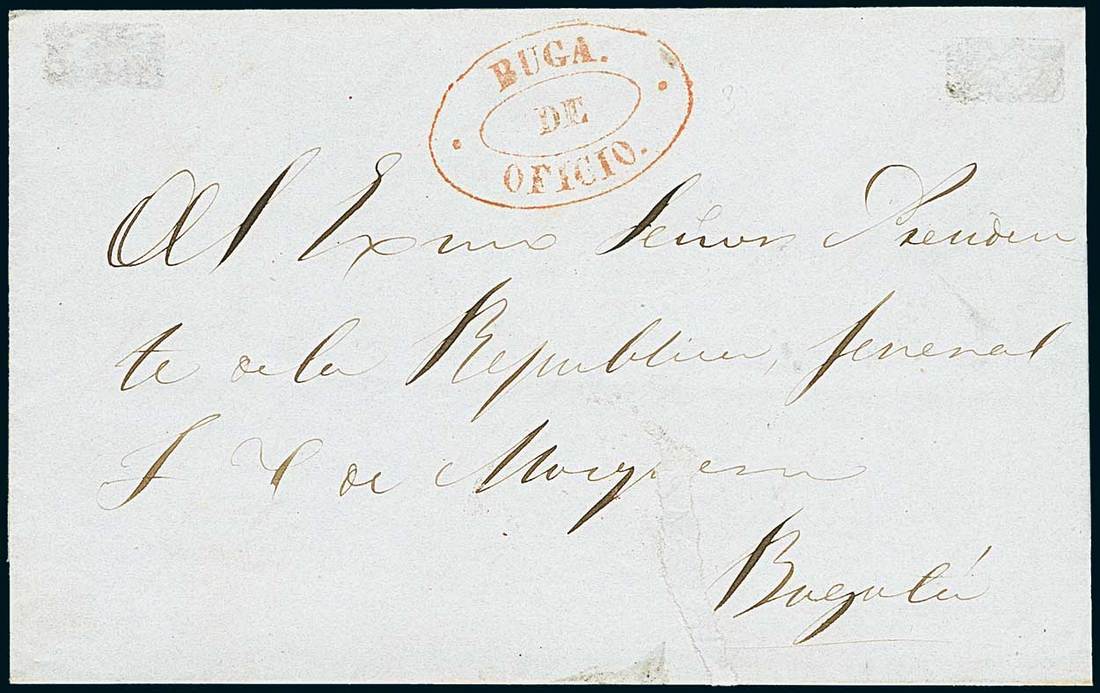 BUGA.
DE
OFICIO.
Al Exmo Señor Presiden
te de la Republica, Jeneral
T C de Mosquera
Bogotá